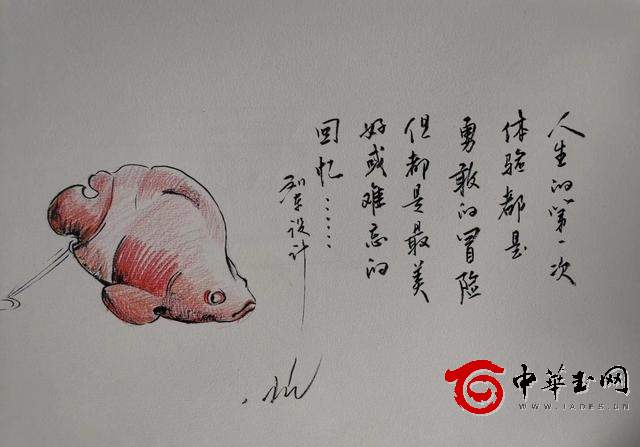 人生的第一次
体验都是
勇敢的冒险
但都是最美
好或难忘的
回忆……
设计
中華玉网
WWW.JADES.CN